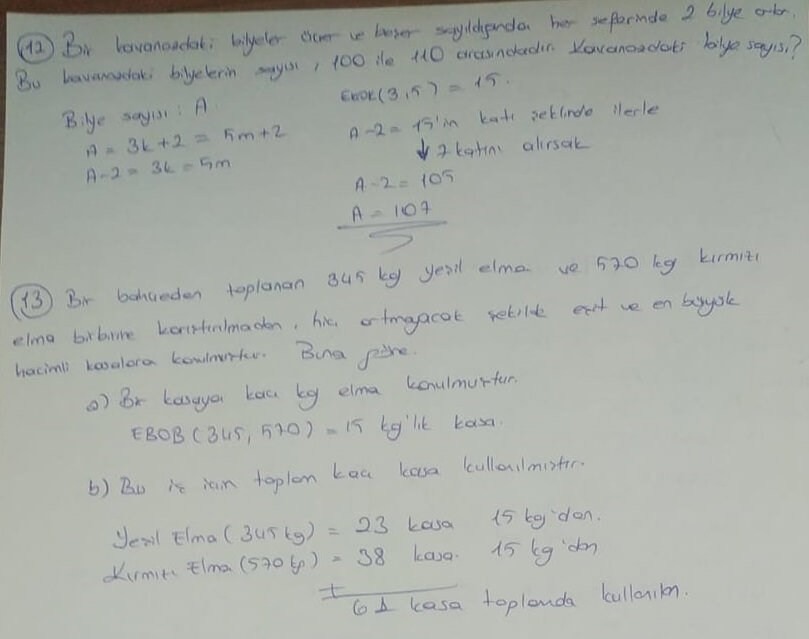 12) Bir kavanozdaki bilyeler üçer ve beşer sayıldığında her seferinde 2 bilye artar.
Bu kavanozdaki bilyelerin sayısı, 100 ile 110 arasındadır. Kavanozdaki bilye sayısı?
Bilye sayısı : A
A = 3k+2 = 5m+2
A-2 = 3k = 5m
EKOK(3,5) = 15.
A-2 = 15'in katı şeklinde ilerle
↓ 7 katını alırsak
A-2 = 105
A = 107
13) Bir bahçeden toplanan 345 kg yeşil elma ve 570 kg kırmızı
elma birbirine karıştırılmadan, hiç artmayacak şekilde eşit ve en büyük
hacimli kasalara konulmuştur. Buna göre.
a) Bir kasaya kaç kg elma konulmuştur.
EBOB(345, 570) = 15 kg'lık kasa.
b) Bu iş için toplam kaç kasa kullanılmıştır.
Yeşil Elma (345 kg) = 23 kasa 15 kg'dan.
Kırmızı Elma (570 kg) = 38 kasa. 15 kg'dan
+
61 kasa toplamda kullanılır.